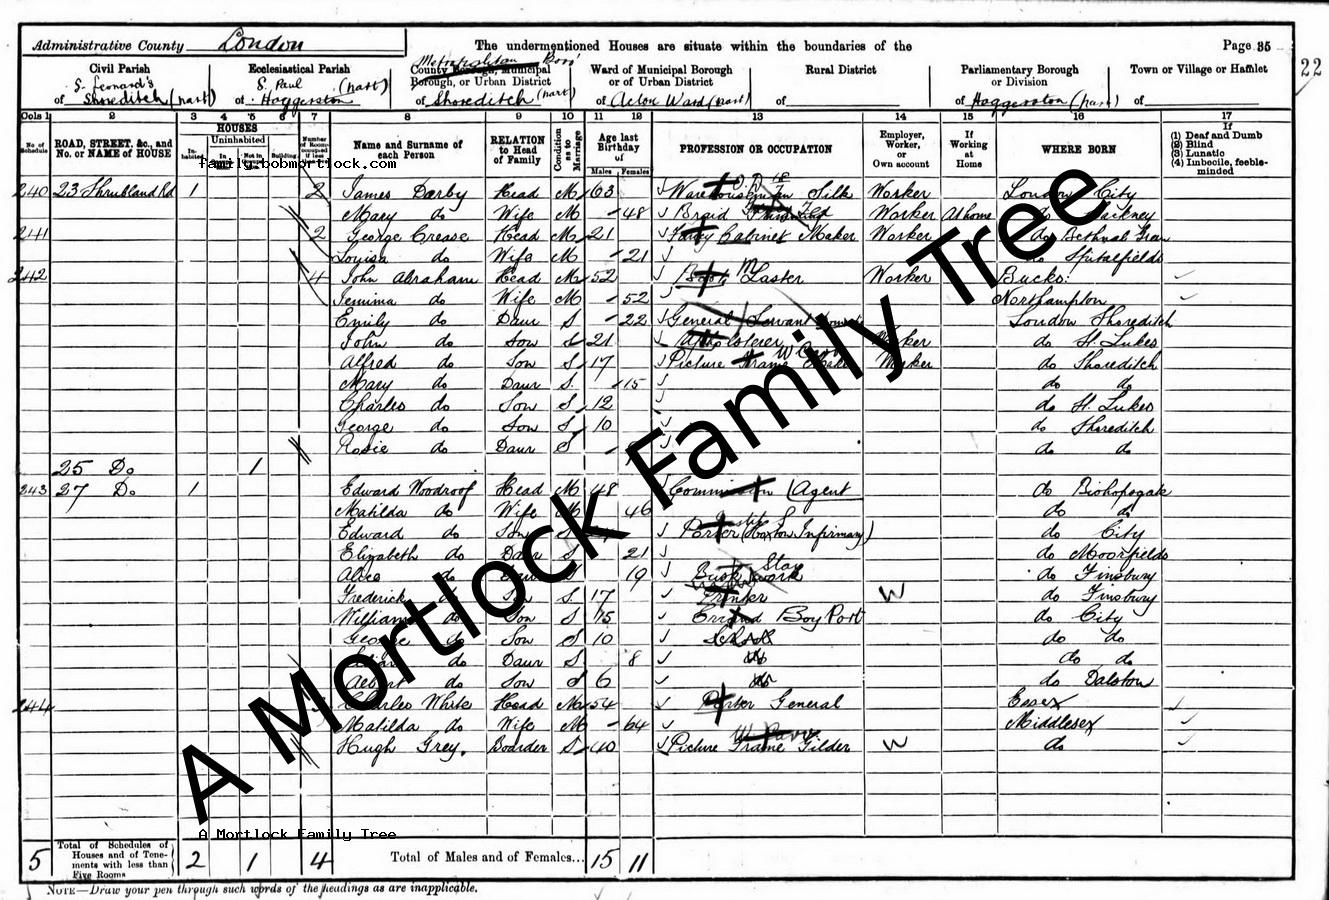 Administrative County London
The undermentioned Houses are situate within the boundaries of the
Page 35
22
Civil Parish
of S. Leonard's Shoreditch (part)
Ecclesiastical Parish
of S. Paul Haggerston (part)
Metropolitan Boro'
County Borough, Municipal Borough, or Urban District
of Shoreditch (part)
Ward of Municipal Borough or of Urban District
of Acton Ward (part)
Rural District
of
Parliamentary Borough or Division
of Haggerston (part)
Town or Village or Hamlet
of
Cols 1 2 3 4 5 6 7 8 9 10 11 12 13 14 15 16 17
No. of Schedule
ROAD, STREET, &c., and No. or NAME of HOUSE
HOUSES
Inhabited
Uninhabited
In Not in Building
Number of Rooms occupied if less
Name and Surname of each Person
RELATION to Head of Family
Condition as to Marriage
Age last Birthday of
Males Females
PROFESSION OR OCCUPATION
Employer, Worker, or Own account
If Working at Home
WHERE BORN
If
(1) Deaf and Dumb
(2) Blind
(3) Lunatic
(4) Imbecile, feeble-minded
family.bobmortlock.com
240 23 Shrubland Rd 1 2 James Darby Head M 63 Warehouseman Silk Worker London City
Mary do Wife M 48 Braid Worker At home do Hackney
241 2 George Crease Head M 21 Fancy Cabinet Maker Worker do Bethnal Green
Louisa do Wife M 21 do Spitalfields
242 4 John Abraham Head M 52 Boot Laster Worker Bucks:
Jemima do Wife M 52 Northampton
Emily do Daur S 22 General Servant London Shoreditch
John do Son S 21 Upholsterer Worker do St. Lukes
Alfred do Son S 17 Picture Frame Maker Worker do Shoreditch
Mary do Daur S 15 do do
Charles do Son S 12 do St. Lukes
George do Son S 10 do Shoreditch
Rosie do Daur S do do
25 Do 1
243 27 Do 1 Edward Woodroof Head M 48 Commission Agent do Bishopsgate
Matilda do Wife M 46 do do
Edward do Son S Porter (Hoxton Infirmary) do City
Elizabeth do Daur S 21 do Moorfields
Alice do Daur S 19 work do Finsbury
Frederick do Son S 17 Printer W do Finsbury
William do Son S 15 Errand Boy Port do City
George do Son S 10 School do do
do Daur S 8 do do do
Albert do Son S 6 do do Dalston
244 Charles White Head M 54 Porter General Essex
Matilda do Wife M 64 Middlesex
Hugh Grey. Boarder S 40 Picture Frame Gilder W do
A Mortlock Family Tree
A Mortlock Family Tree
5 Total of Schedules of Houses and of Tenements with less than Five Rooms 2 1 4 Total of Males and of Females... 15 11
NOTE—Draw your pen through such words of the headings as are inapplicable.